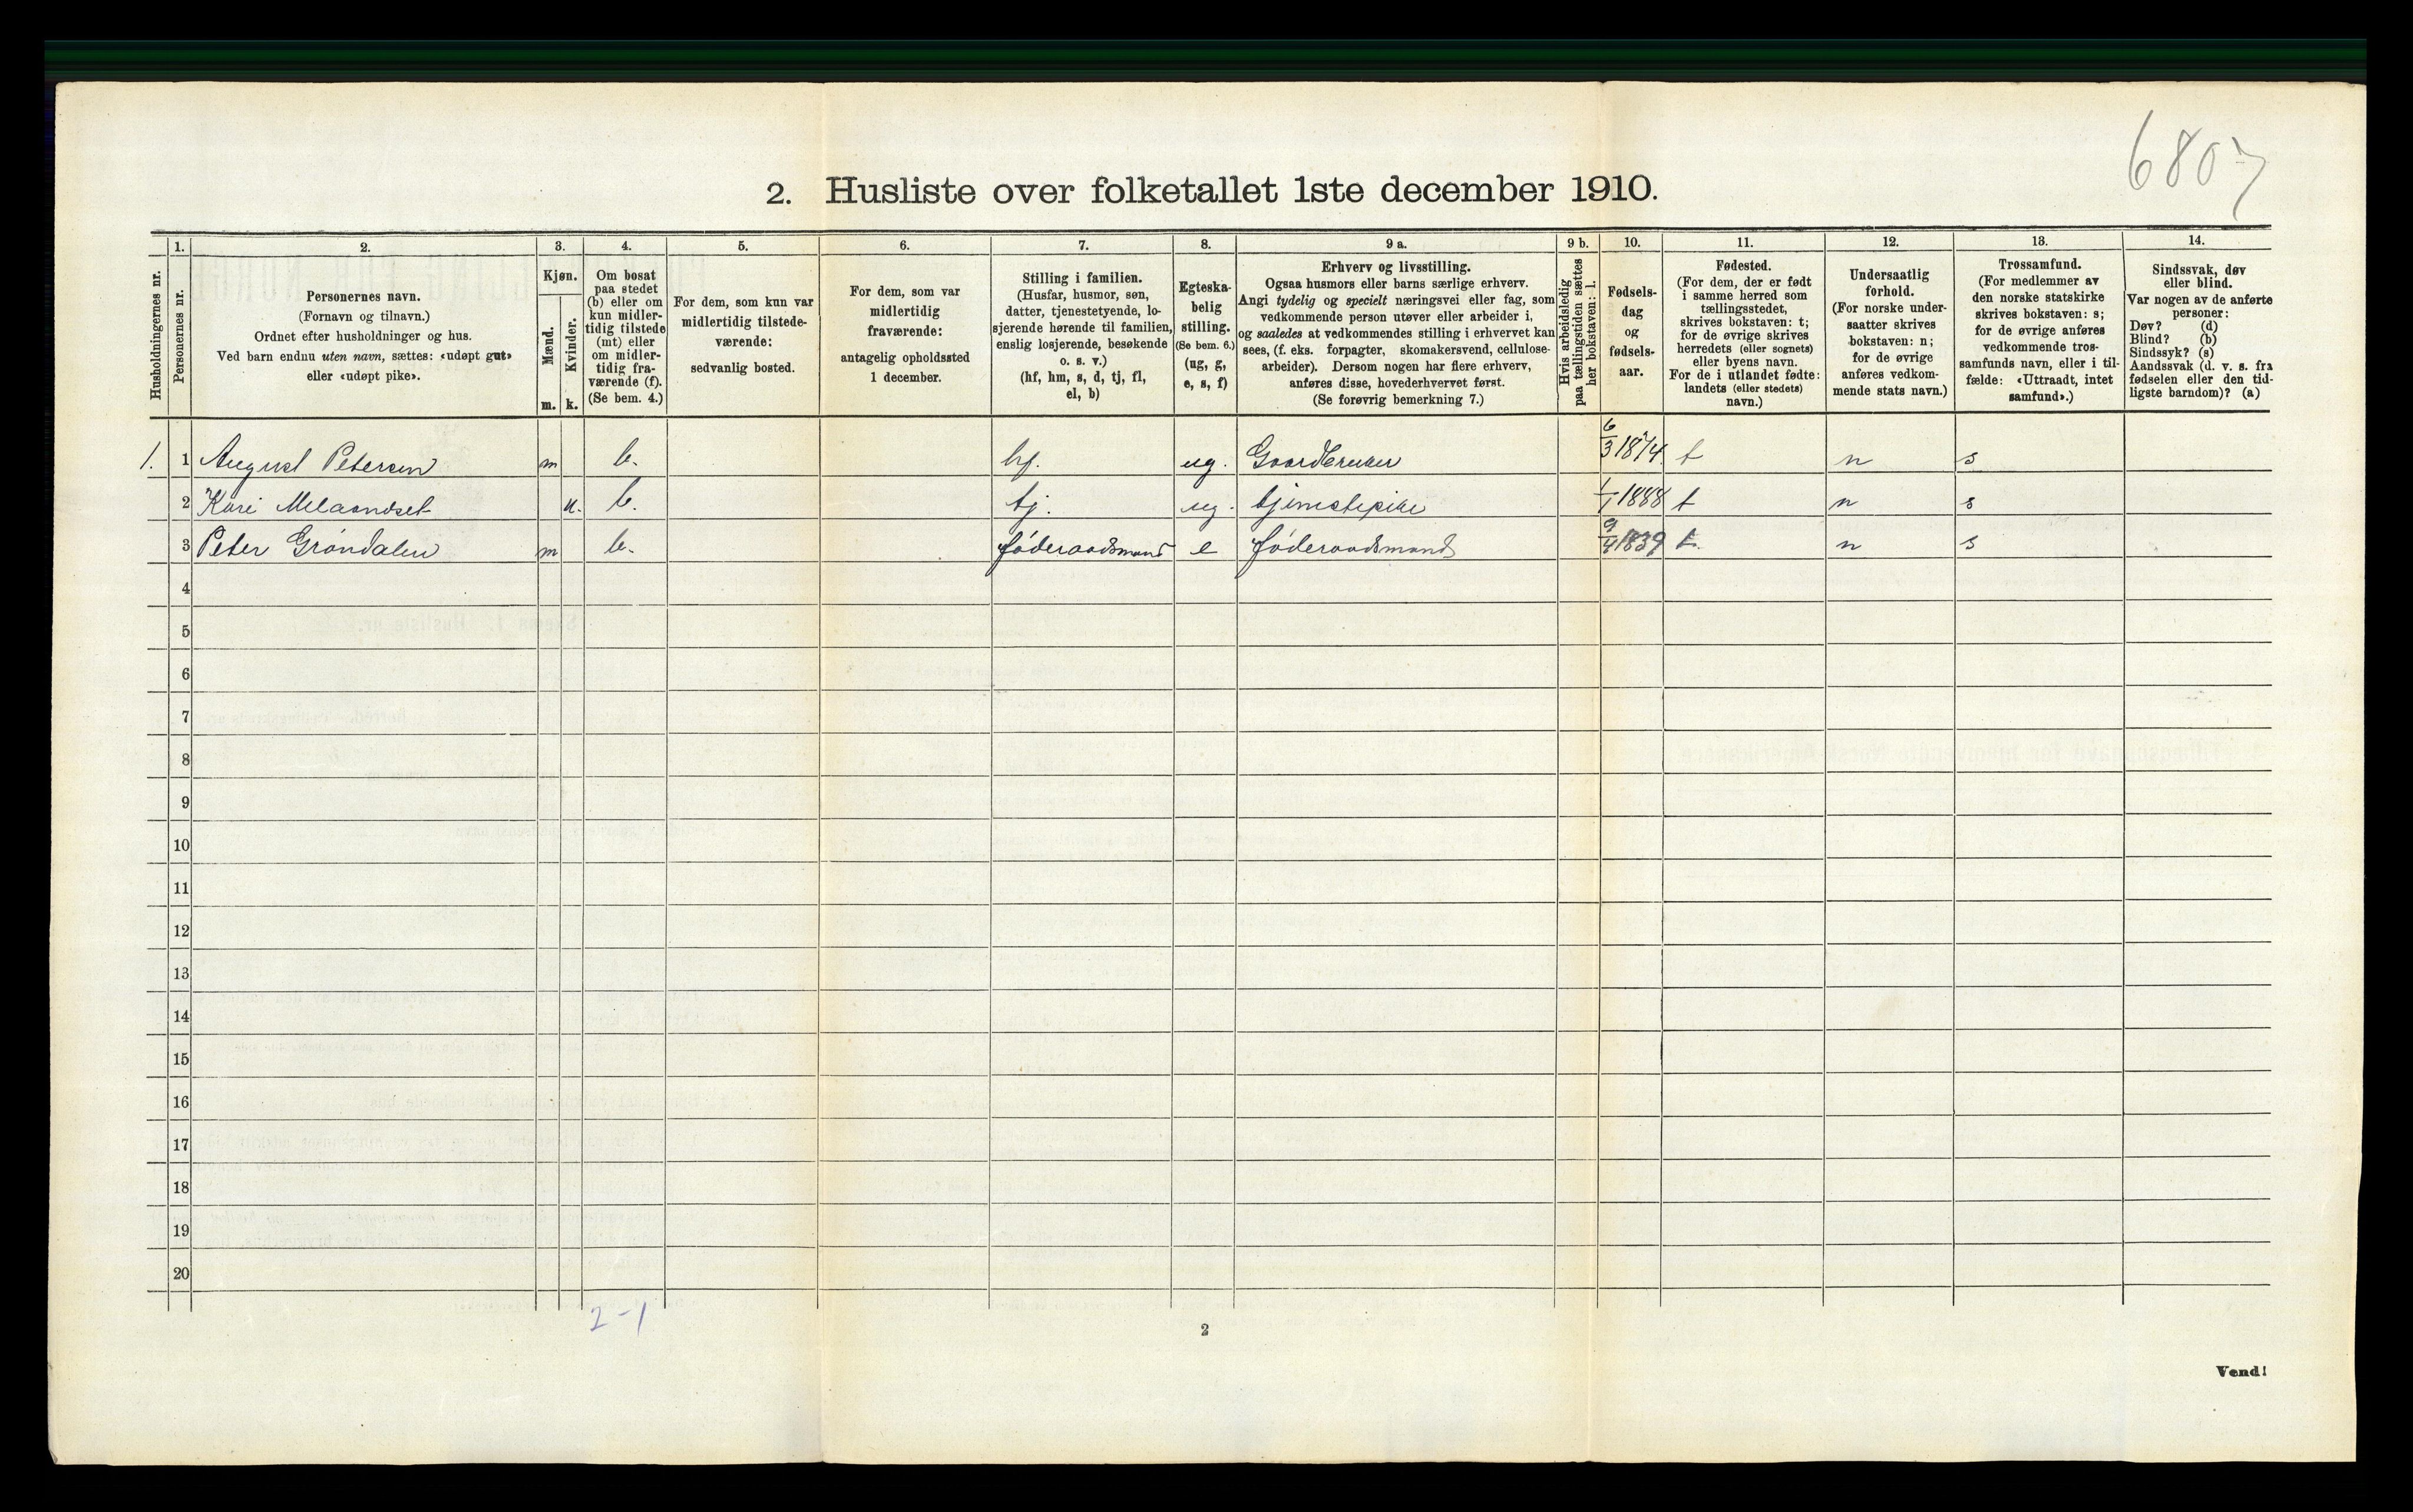 6807
2. Husliste over folketallet 1ste december 1910.
Husholdningernes nr.
1.
Personernes nr.
2.
Personernes navn.
(Fornavn og tilnavn.)
Ordnet efter husholdninger og hus.
Ved barn endnu uten navn, sættes: «udøpt gut»
eller «udøpt pike».
3.
Kjøn.
Mænd.
Kvinder.
m. k.
4.
Om bosat
paa stedet
(b) eller om
kun midler-
tidig tilstede
(mt) eller
om midler-
tidig fra-
værende (f).
(Se bem. 4.)
5.
For dem, som kun var
midlertidig tilstede-
værende:
sedvanlig bosted.
6.
For dem, som var
midlertidig
fraværende:
antagelig opholdssted
1 december.
7.
Stilling i familien.
(Husfar, husmor, søn,
datter, tjenestetyende, lo-
sjerende hørende til familien,
enslig losjerende, besøkende
o. s. v.)
(hf, hm, s, d, tj, fl,
el, b)
8.
Egteska-
belig
stilling.
(Se bem. 6.)
(ug, g,
e, s, f)
9 a.
Erhverv og livsstilling.
Ogsaa husmors eller barns særlige erhverv.
Angi tydelig og specielt næringsvei eller fag, som
vedkommende person utøver eller arbeider i,
og saaledes at vedkommendes stilling i erhvervet kan
sees, (f. eks. forpagter, skomakersvend, cellulose-
arbeider). Dersom nogen har flere erhverv,
anføres disse, hovederhvervet først.
(Se forøvrig bemerkning 7.)
9 b.
Hvis arbeidsledig
paa tællingstiden sættes
her bokstaven: l.
10.
Fødsels-
dag
og
fødsels-
aar.
11.
Fødested.
(For dem, der er født
i samme herred som
tællingsstedet,
skrives bokstaven: t;
for de øvrige skrives
herredets (eller sognets)
eller byens navn.
For de i utlandet fødte:
landets (eller stedets)
navn.)
12.
Undersaatlig
forhold.
(For norske under-
saatter skrives
bokstaven: n;
for de øvrige
anføres vedkom-
mende stats navn.)
13.
Trossamfund.
(For medlemmer av
den norske statskirke
skrives bokstaven: s;
for de øvrige anføres
vedkommende tros-
samfunds navn, eller i til-
fælde: «Uttraadt, intet
samfund».)
14.
Sindssvak, døv
eller blind.
Var nogen av de anførte
personer:
Døv? (d)
Blind? (b)
Sindssyk? (s)
Aandssvak (d. v. s. fra
fødselen eller den tid-
ligste barndom)? (a)
1. 1 August Petersen m b. hf. ug. Gaardbruker 6/3 1874 t n s
2 Kari Melaandset k. b. tj. ug. tjenestepike 1/1 1888 t n s
3 Peter Grøndalen m b. føderaadsmand e føderaadsmand 9/4 1839 t. n s
4
5
6
7
8
9
10
11
12
13
14
15
16
17
18
19
20
2-1
2
Vend!